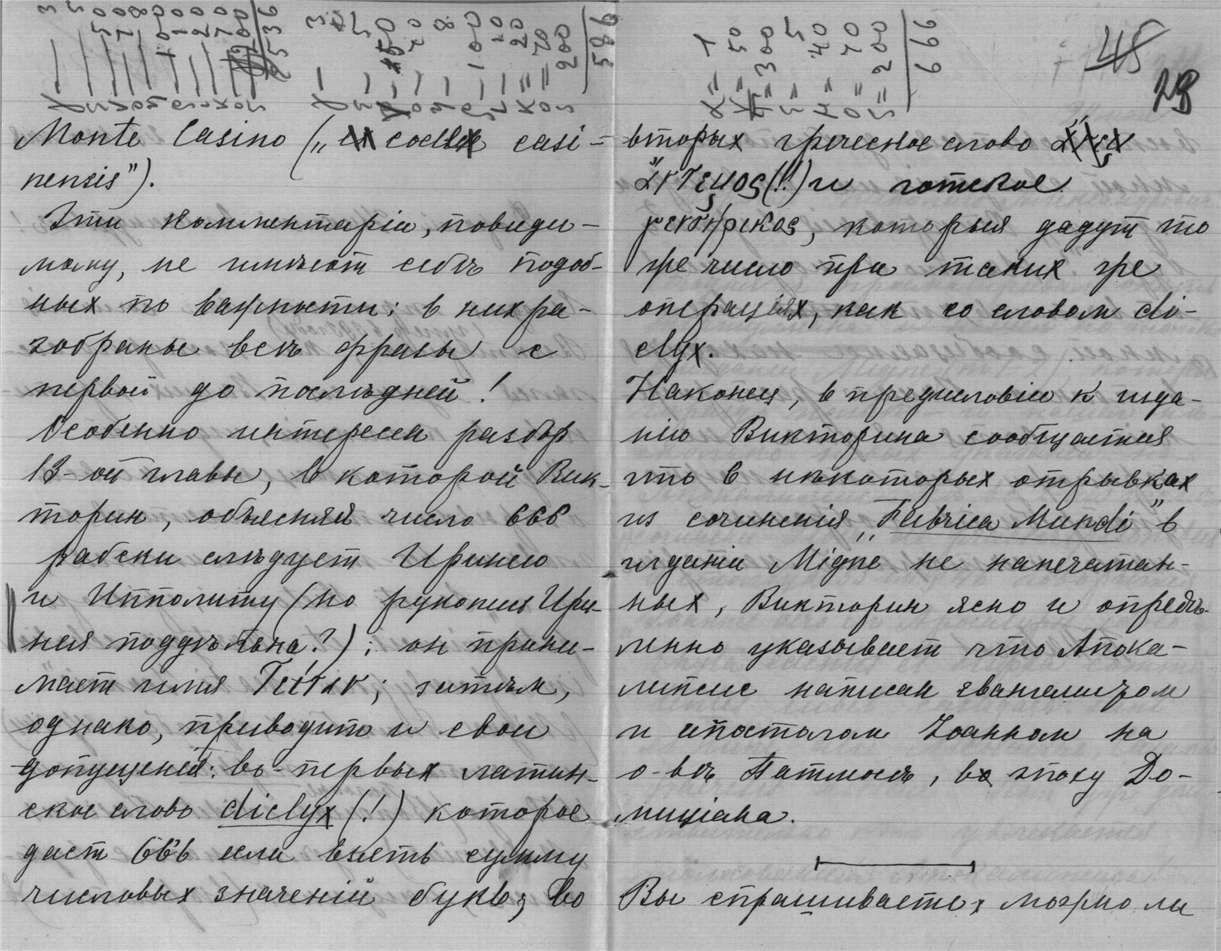 45
28
Monte Casino („ coelle casi-
nensis").
Эти комментаріи, повиди-
мому, не имѣют себѣ подоб-
ных по важности; в них ра-
зобраны всѣ фразы с
первой до послѣдней!
Особенно интересен разбор
13-ой главы, в которой Вик-
торин, объясняя число 666
рабски слѣдует Иринею
и Ипполиту (но рукопись Ири-
нея поддѣльна?); он прини-
мает имя Τειταν; затѣм,
однако, приводит и свои
допущенія: во-первых латин-
ское слово diclyx (!) которое
даст 666 если взять сумму
числовых значеній букв; во
вторых греческое слово
ἄντεμος (!) и готское
γενσήρικος, которыя дадут то
же число при таких же
операціях, как со словом di-
clyx.
Наконец, в предисловіи к изда-
нію Викторина сообщается
что в нѣкоторых отрывках
из сочиненія „Fabrica Mundi" в
изданіи Migne не напечатан-
ных, Викторин ясно и опредѣ-
ленно указывает что Апока-
липсис написан евангелистом
и апостолом Іоанном на
о-вѣ Патмосѣ, в эпоху До-
миціана.
Вы спрашиваете, можно ли